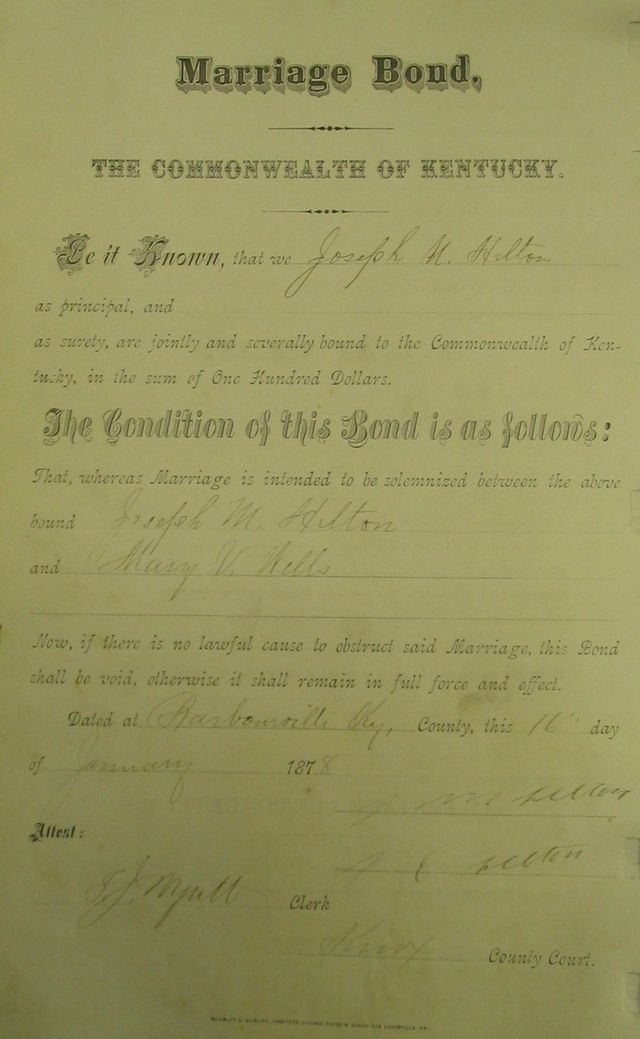 Marriage Bond.
THE COMMONWEALTH OF KENTUCKY.
Be it Known, that we Joseph M. Hilton
as principal, and
as surety, are jointly and severally bound to the Commonwealth of Ken-
tucky, in the sum of One Hundred Dollars.
The Condition of this Bond is as follows:
That, whereas Marriage is intended to be solemnized between the above
bound Joseph M. Hilton
and Mary V. Wells
Now, if there is no lawful cause to obstruct said Marriage, this Bond
shall be void, otherwise it shall remain in full force and effect.
Dated at Barbourville Ky, County, this 16" day
of January 1878
J M Hilton
Attest:
Hilton
Clerk
Knox County Court.